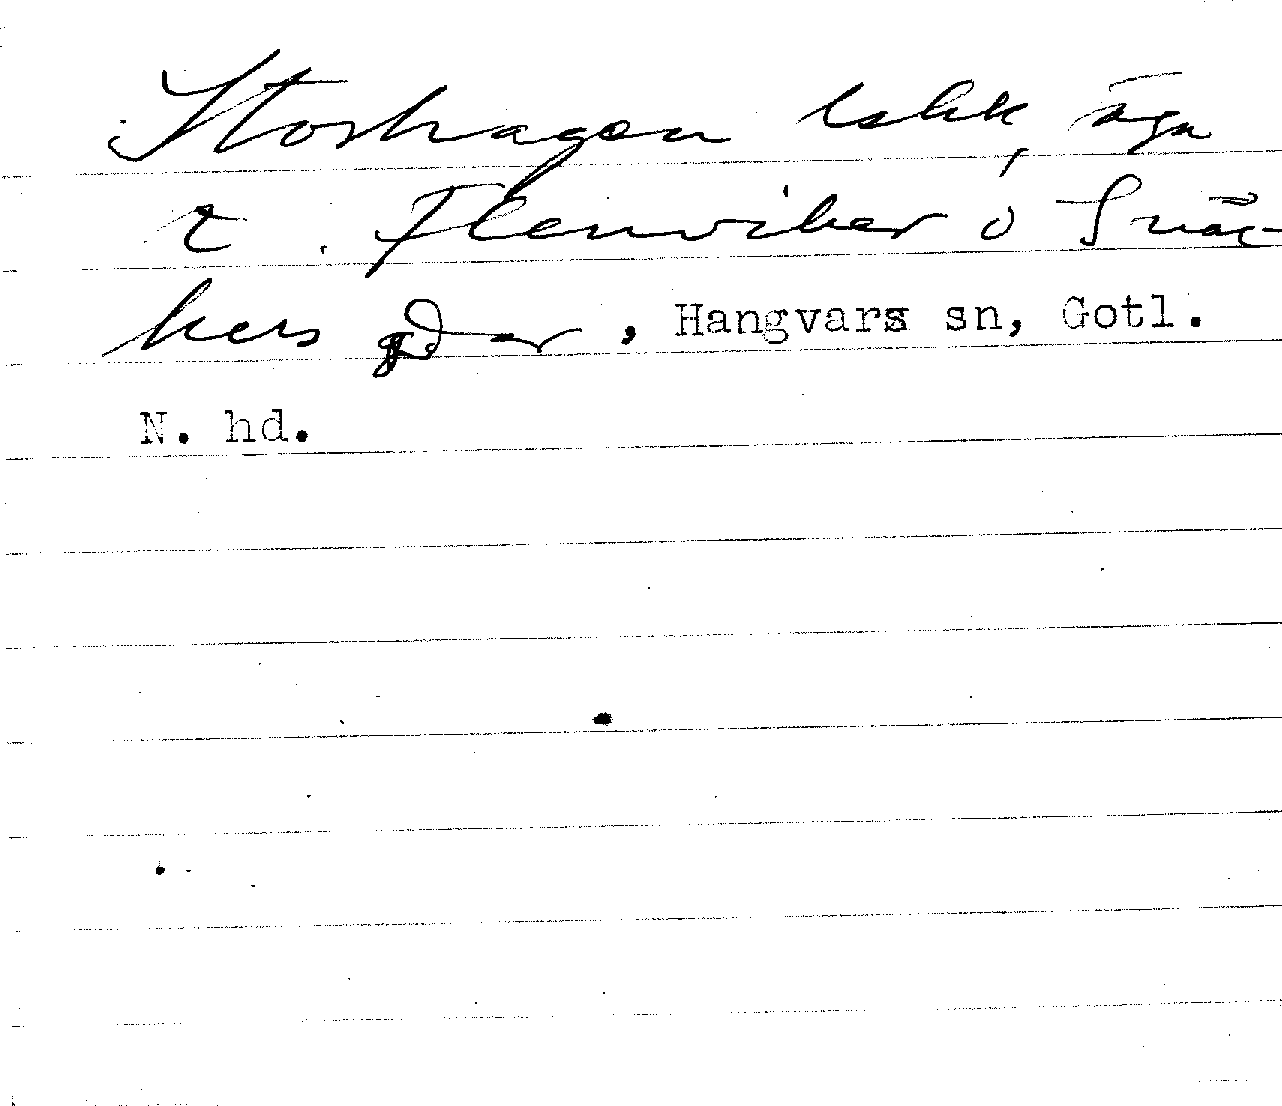 Storhagen lskk, äga
t. Flenvikar o Snäc-
kers gdar, Hangvars sn, Gotl.
N. hd.